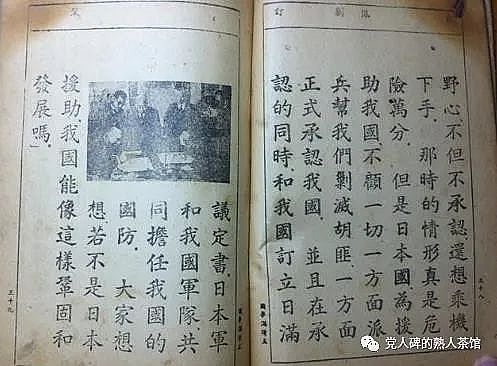 野心不但不承認還想乘機
下手、那時的情形真是危
險萬分、但是日本國、為援
助我國、不顧一切一方面派
兵幫我們剿滅胡匪、一方面
正式承認我國、並且在承
認的同時、和我國訂立日滿
三十八
議定書、日本軍
和我國軍隊、共
同擔任我國的
國防、大家想
想若不是日本
援助我國能像這樣鞏固和
發展嗎、」
三十九
党人碑的熟人茶馆